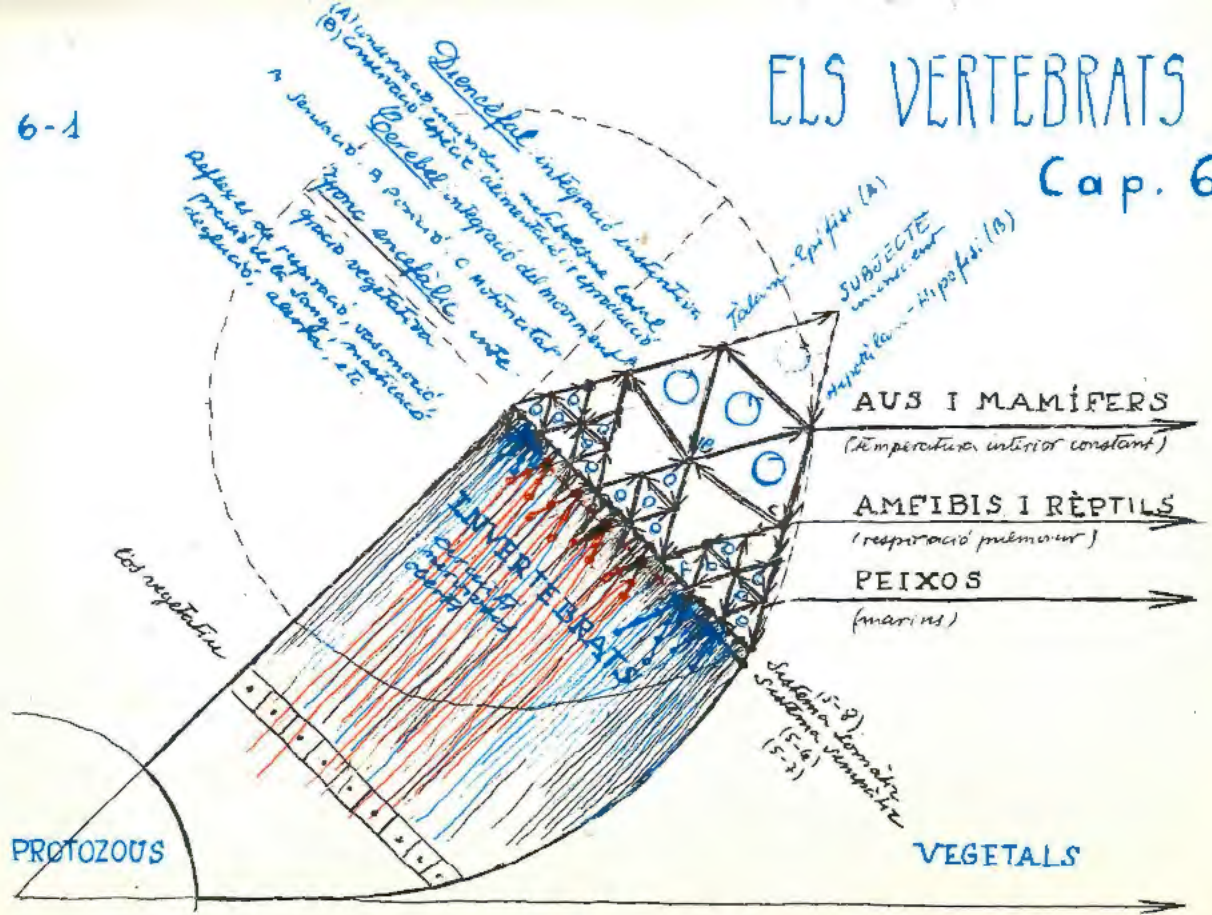 6-1
ELS VERTEBRATS
Cap. 6
Diencèfal integració instintiva
(A) conservació individu. metabolisme basal
(B) conservació espècie: alimentació i reproducció
Cerebel integració del moviment
A sensació. B posició. C motricitat
Tronc encefàlic inte-
gració vegetativa
Reflexes de respiració, vasomoció,
pressió de la sang, masticació,
deglució, alerta, etc
Tàlam-Epífisi (A)
SUBJECTE
inconscient
Hipotàlam-Hipofisi (B)
AUS I MAMÍFERS
(temperatura interior constant)
AMFIBIS I RÈPTILS
(respiració pulmonar)
PEIXOS
(marins)
INVERTEBRATS
cos vegetatiu
(5-8)
Sistema somàtic
(5-6)
Sistema simpàtic
(5-7)
PROTOZOUS
VEGETALS